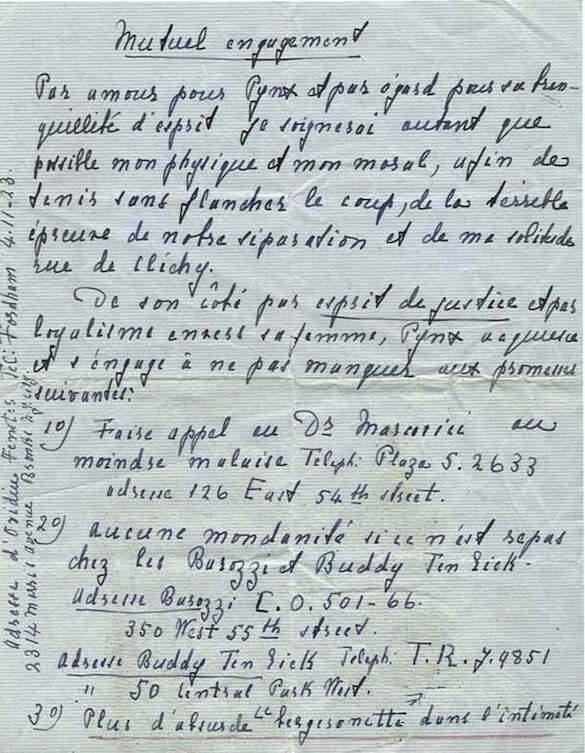 Mutuel engagement
Par amour pour Pynx et par égard pour sa tran-
quillité d'esprit je soignerai autant que
possible mon physique et mon moral, afin de
tenir sans flancher le coup, de la terrible
épreuve de notre séparation et de ma solitude
rue de Clichy.
De son côté par esprit de justice et par
loyalisme envers sa femme, Pynx acquiesce
et s'engage à ne pas manquer aux promesses
suivantes:
1o) Faire appel au Dr au
moindre malaise Teleph: Plaza 5.2633
adresse 126 East 54th street.
2o) aucune mondanité si ce n'est repas
chez les Barozzi et Buddy Ten Eick.
adresse Barozzi C.O. 501-66.
350 West 55th street.
adresse Buddy Ten Eick Teleph: T.R.7.9851
" 50 Central Park West.
3o) Plus d'absurde " " dans l'intimité
adresse d' Tel: Fordham 4.11-23.
2314 avenue